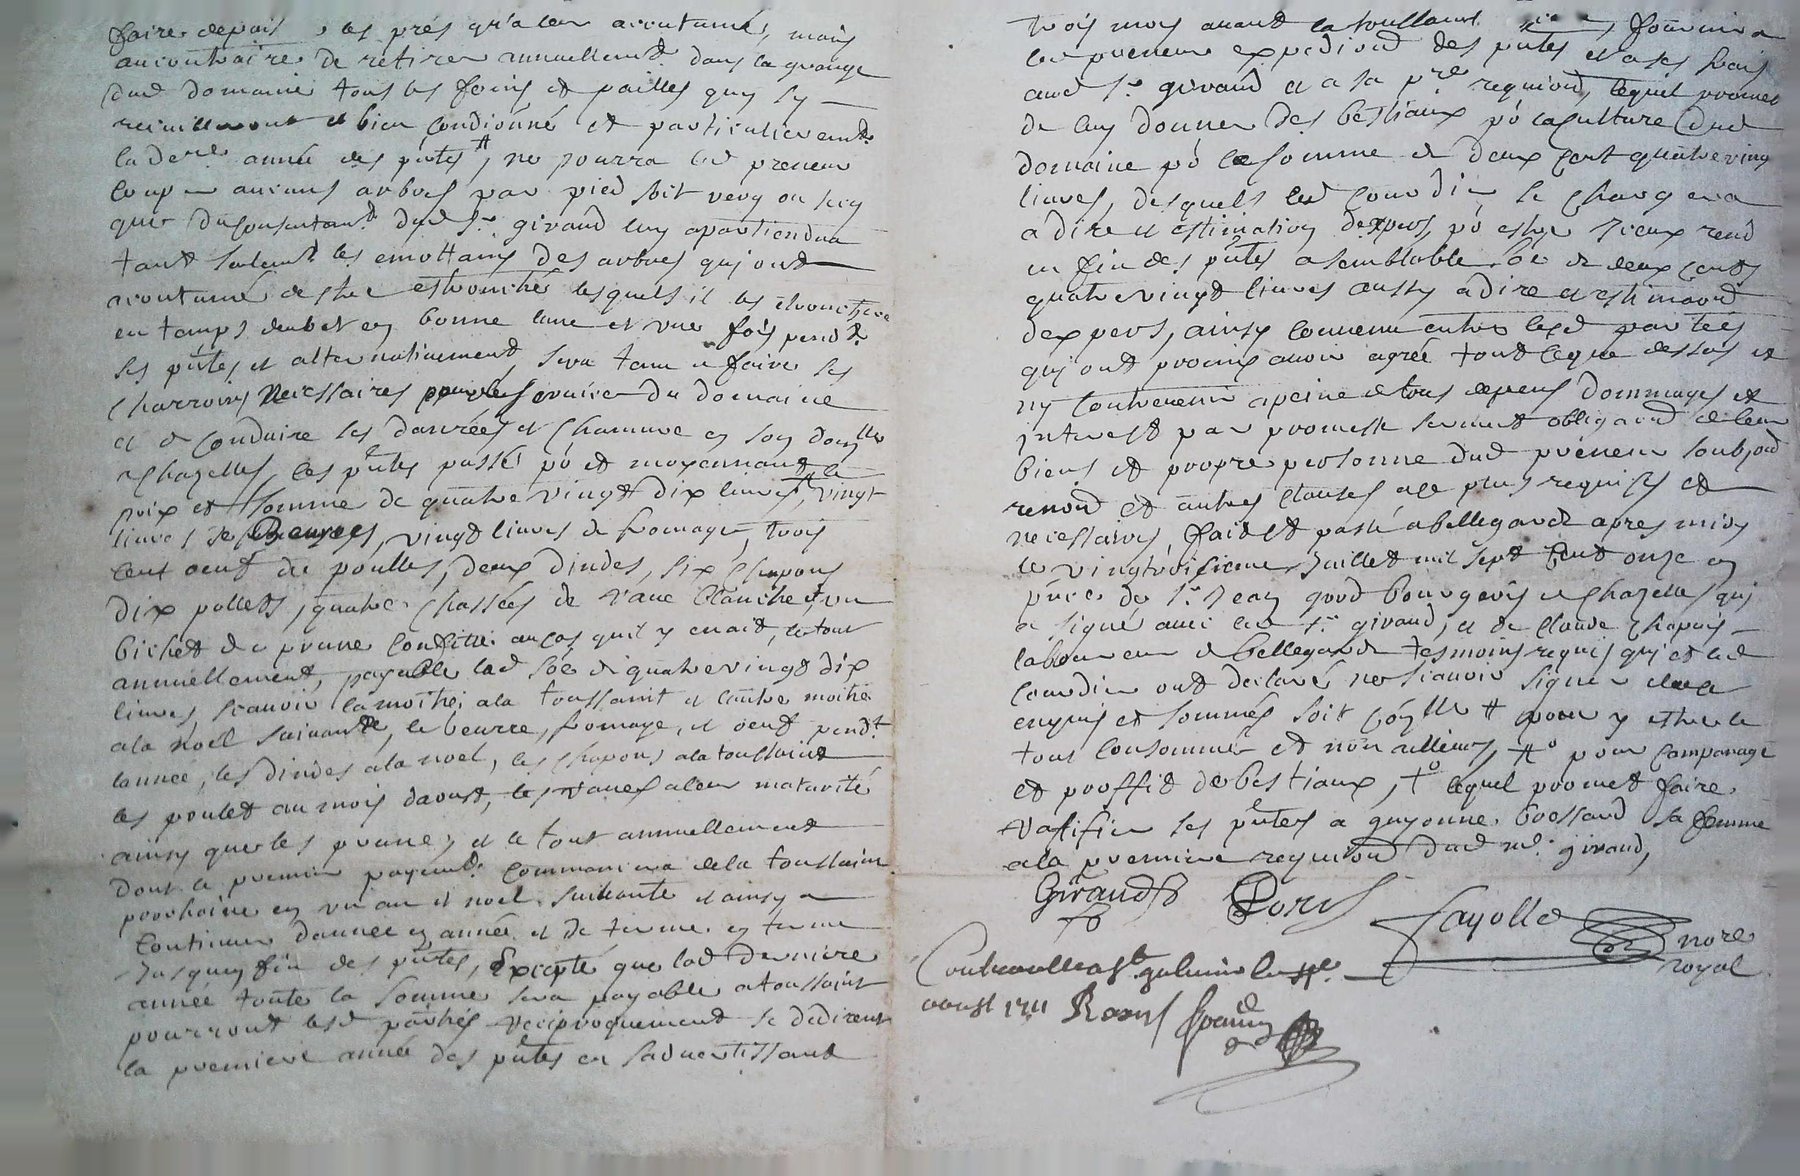 faire depuis les prés qu'a leur accoutumé, mais
au contraire de retirer annuellemt. dans la grange
dud domaine tous les foins et pailles quy sy
recuilleront et bien condionné et particulieremt.
la derre année des pntes #, ne pourra led preneur
couper aucuns arbres par pied soit verg ou secq
que du consantant. dud sr. giraud luy apartiendra
tant seulemt. les emottains des arbres qui ont
acoutumé destre estronché lesquels il les
en tamps deub et en bonne lune et une fois pendt.
les pntes et alternativement, sera tenu de faire les
charrois necessaires pour le service du domaine
et de conduire les danrées et chanvre en son domlle
a chazelles, les pntes passé po et moyennant le
prix et somme de quatre vingt dix livres #, vingt
livres de Beurres, vingt livres de fromage, trois
cent oeuf de poulles, deux dindes, six chapons
dix pollets, quatre chassées de rave blanche et un
bichet de prune au cas quil y en ait, le tout
annuellement, payable lad soe de quatre vingt dix
livres, scavoir la moitié a la toussaint et lautre moitié
a la noel suivante, le beurre, fromage, et oeuf pendt.
lannée, les dindes a la noel, les chapons a la toussaint
les poulet au mois daoust, les raves a leur maturité
ainsy que les prunes, et le tout annuellement
dont le premier payemt. commancera de la toussaint
prochaine en un an et noel suivante et ainsy a
continuer dannée en année et de terme en terme
jusquen fin des pntes, Excepté que lad derniere
année toute la somme sera payable a toussaint
pourront lesd parties reciproquement se dedirent
la premiere année des pntes en sadvertissant
trois mois avant la toussaint, fournira
led preneur expediond des pntes et a ses frais
aud sr. giraud et a sa pre requiond, lequel promet
de luy donner des bestiaux po la culture dud
domaine po la somme de deux cent quatre ving
livres, desquels led courdier se chargera
a dire et estimation dexpers, po estre iceux rend
en fin des pntes a semblable soe de deux cents
quatre vingt livres aussy a dire et estimaond
dexpers, ainsy convenu entre lesd parties
qui ont promis avoir agréé tout ceque dessus et
ny contrevenir a peine de tous depens dommages et
interest par promesse serment obligaond de leur
biens et propre personne dud preneur soubjond
renond et autres clauses a ce plus requises et
necessaires, fait et passé a bellegarde apres midy
le vingtroisieme Juillet mil sept cent onze en
pnce de sr. Jean bourgeois de chazelles qui
a signé avec led sr. giraud, et de claude chapuis
laboureur de bellegarde tesmoins requis qui et led
courdier ont declaré ne scavoir signer de ce
enquis et sommés soit coñlle # pour y estre le
tout consommé et non allieurs, #o pour campanage
et prouffit de bestiaux, +o lequel promet faire
ratifier les pntes a guyonne brossard sa femme
a la premiere requiond dud mr. giraud,
Giraud
fayolle
nore
royal
Controulle a st. galmier le
aoust 1711